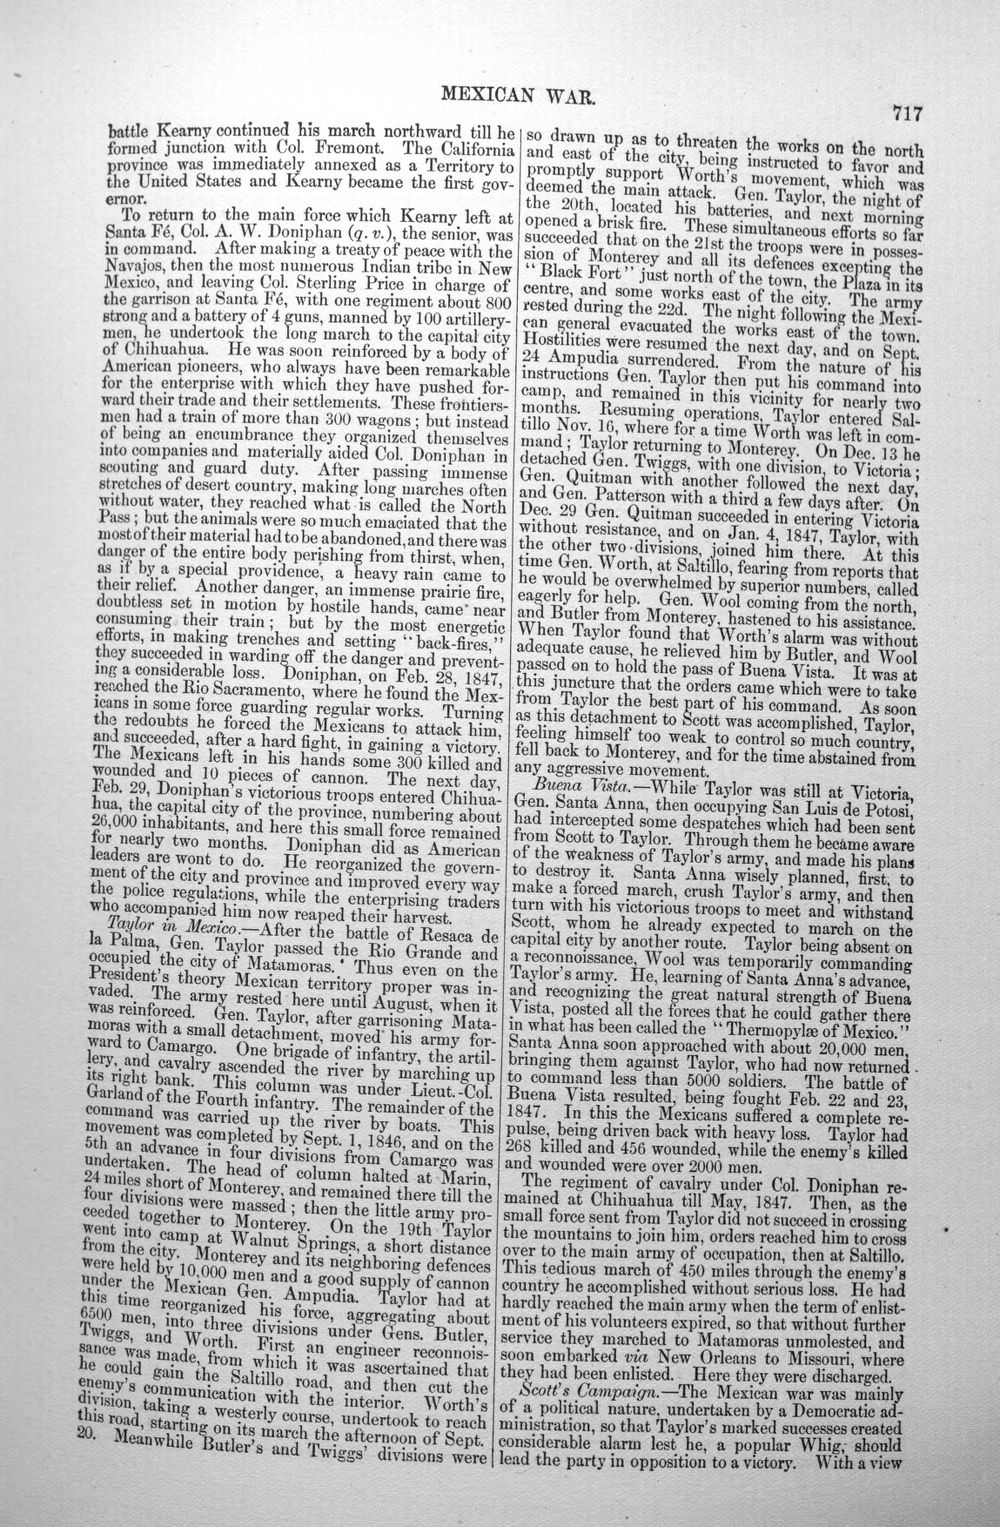 MEXICAN WAR.
717
battle Kearny continued his march northward till he
formed junction with Col. Fremont. The California
province was immediately annexed as a Territory to
the United States and Kearny became the first gov-
ernor.
To return to the main force which Kearny left at
Santa Fé, Col. A. W. Doniphan (q. v.), the senior, was
in command. After making a treaty of peace with the
Navajos, then the most numerous Indian tribe in New
Mexico, and leaving Col. Sterling Price in charge of
the garrison at Santa Fé, with one regiment about 800
strong and a battery of 4 guns, manned by 100 artillery-
men, he undertook the long march to the capital city
of Chihuahua. He was soon reinforced by a body of
American pioneers, who always have been remarkable
for the enterprise with which they have pushed for-
ward their trade and their settlements. These frontiers-
men had a train of more than 300 wagons; but instead
of being an encumbrance they organized themselves
into companies and materially aided Col. Doniphan in
scouting and guard duty. After passing immense
stretches of desert country, making long marches often
without water, they reached what is called the North
Pass; but the animals were so much emaciated that the
most of their material had to be abandoned, and there was
danger of the entire body perishing from thirst, when,
as if by a special providence, a heavy rain came to
their relief. Another danger, an immense prairie fire,
doubtless set in motion by hostile hands, came near
consuming their train; but by the most energetic
efforts, in making trenches and setting "back-fires,"
they succeeded in warding off the danger and prevent-
ing a considerable loss. Doniphan, on Feb. 28, 1847,
reached the Rio Sacramento, where he found the Mex-
icans in some force guarding regular works. Turning
the redoubts he forced the Mexicans to attack him,
and succeeded, after a hard fight, in gaining a victory.
The Mexicans left in his hands some 300 killed and
wounded and 10 pieces of cannon. The next day,
Feb. 29, Doniphan's victorious troops entered Chihua-
hua, the capital city of the province, numbering about
26,000 inhabitants, and here this small force remained
for nearly two months. Doniphan did as American
leaders are wont to do. He reorganized the govern-
ment of the city and province and improved every way
the police regulations, while the enterprising traders
who accompanied him now reaped their harvest.
Taylor in Mexico.—After the battle of Resaca de
la Palma, Gen. Taylor passed the Rio Grande and
occupied the city of Matamoras. Thus even on the
President's theory Mexican territory proper was in-
vaded. The army rested here until August, when it
was reinforced. Gen. Taylor, after garrisoning Mata-
moras with a small detachment, moved his army for-
ward to Camargo. One brigade of infantry, the artil-
lery, and cavalry ascended the river by marching up
its right bank. This column was under Lieut.-Col.
Garland of the Fourth infantry. The remainder of the
command was carried up the river by boats. This
movement was completed by Sept. 1, 1846, and on the
5th an advance in four divisions from Camargo was
undertaken. The head of column halted at Marin,
24 miles short of Monterey, and remained there till the
four divisions were massed; then the little army pro-
ceeded together to Monterey. On the 19th Taylor
went into camp at Walnut Springs, a short distance
from the city. Monterey and its neighboring defences
were held by 10,000 men and a good supply of cannon
under the Mexican Gen. Ampudia. Taylor had at
this time reorganized his force, aggregating about
6500 men, into three divisions under Gens. Butler,
Twiggs, and Worth. First an engineer reconnois-
sance was made, from which it was ascertained that
he could gain the Saltillo road, and then cut the
enemy's communication with the interior. Worth's
division, taking a westerly course, undertook to reach
this road, starting on its march the afternoon of Sept.
20. Meanwhile Butler's and Twiggs' divisions were
so drawn up as to threaten the works on the north
and east of the city, being instructed to favor and
promptly support Worth's movement, which was
deemed the main attack. Gen. Taylor, the night of
the 20th, located his batteries, and next morning
opened a brisk fire. These simultaneous efforts so far
succeeded that on the 21st the troops were in posses-
sion of Monterey and all its defences excepting the
"Black Fort" just north of the town, the Plaza in its
centre, and some works east of the city. The army
rested during the 22d. The night following the Mexi-
can general evacuated the works east of the town.
Hostilities were resumed the next day, and on Sept.
24 Ampudia surrendered. From the nature of his
instructions Gen. Taylor then put his command into
camp, and remained in this vicinity for nearly two
months. Resuming operations, Taylor entered Sal-
tillo Nov. 16, where for a time Worth was left in com-
mand; Taylor returning to Monterey. On Dec. 13 he
detached Gen. Twiggs, with one division, to Victoria;
Gen. Quitman with another followed the next day,
and Gen. Patterson with a third a few days after. On
Dec. 29 Gen. Quitman succeeded in entering Victoria
without resistance, and on Jan. 4, 1847, Taylor, with
the other two divisions, joined him there. At this
time Gen. Worth, at Saltillo, fearing from reports that
he would be overwhelmed by superior numbers, called
eagerly for help. Gen. Wool coming from the north,
and Butler from Monterey, hastened to his assistance.
When Taylor found that Worth's alarm was without
adequate cause, he relieved him by Butler, and Wool
passed on to hold the pass of Buena Vista. It was at
this juncture that the orders came which were to take
from Taylor the best part of his command. As soon
as this detachment to Scott was accomplished, Taylor,
feeling himself too weak to control so much country,
fell back to Monterey, and for the time abstained from
any aggressive movement.
Buena Vista.—While Taylor was still at Victoria,
Gen. Santa Anna, then occupying San Luis de Potosi,
had intercepted some despatches which had been sent
from Scott to Taylor. Through them he became aware
of the weakness of Taylor's army, and made his plans
to destroy it. Santa Anna wisely planned, first, to
make a forced march, crush Taylor's army, and then
turn with his victorious troops to meet and withstand
Scott, whom he already expected to march on the
capital city by another route. Taylor being absent on
a reconnoissance, Wool was temporarily commanding
Taylor's army. He, learning of Santa Anna's advance,
and recognizing the great natural strength of Buena
Vista, posted all the forces that he could gather there
in what has been called the "Thermopylæ of Mexico."
Santa Anna soon approached with about 20,000 men,
bringing them against Taylor, who had now returned
to command less than 5000 soldiers. The battle of
Buena Vista resulted, being fought Feb. 22 and 23,
1847. In this the Mexicans suffered a complete re-
pulse, being driven back with heavy loss. Taylor had
268 killed and 456 wounded, while the enemy's killed
and wounded were over 2000 men.
The regiment of cavalry under Col. Doniphan re-
mained at Chihuahua till May, 1847. Then, as the
small force sent from Taylor did not succeed in crossing
the mountains to join him, orders reached him to cross
over to the main army of occupation, then at Saltillo.
This tedious march of 450 miles through the enemy's
country he accomplished without serious loss. He had
hardly reached the main army when the term of enlist-
ment of his volunteers expired, so that without further
service they marched to Matamoras unmolested, and
soon embarked via New Orleans to Missouri, where
they had been enlisted. Here they were discharged.
Scott's Campaign.—The Mexican war was mainly
of a political nature, undertaken by a Democratic ad-
ministration, so that Taylor's marked successes created
considerable alarm lest he, a popular Whig, should
lead the party in opposition to a victory. With a view